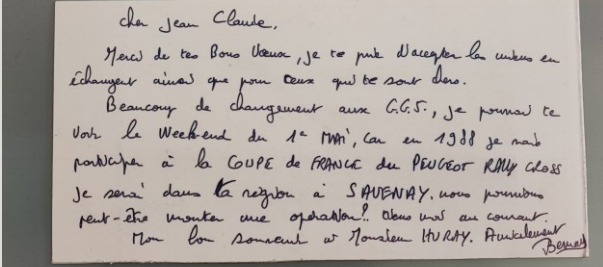 cher Jean Claude,
Merci de tes Bons Vœux, je te prie d'accepter les miens en
échangent ainsi que pour ceux qui te sont chers.
Beaucoup de changement aux G.G.S., je pourrai te
voir le Week-end du 1er MAI, car en 1988 je vais
participer à la COUPE de FRANCE du PEUGEOT RALLY CROSS
Je serai dans ta région à SAVENAY. nous pourrions
peut-être monter une opération?! tiens moi au courant.
Mon bon souvenir à Monsieur HURAY. Amicalement
Bernard